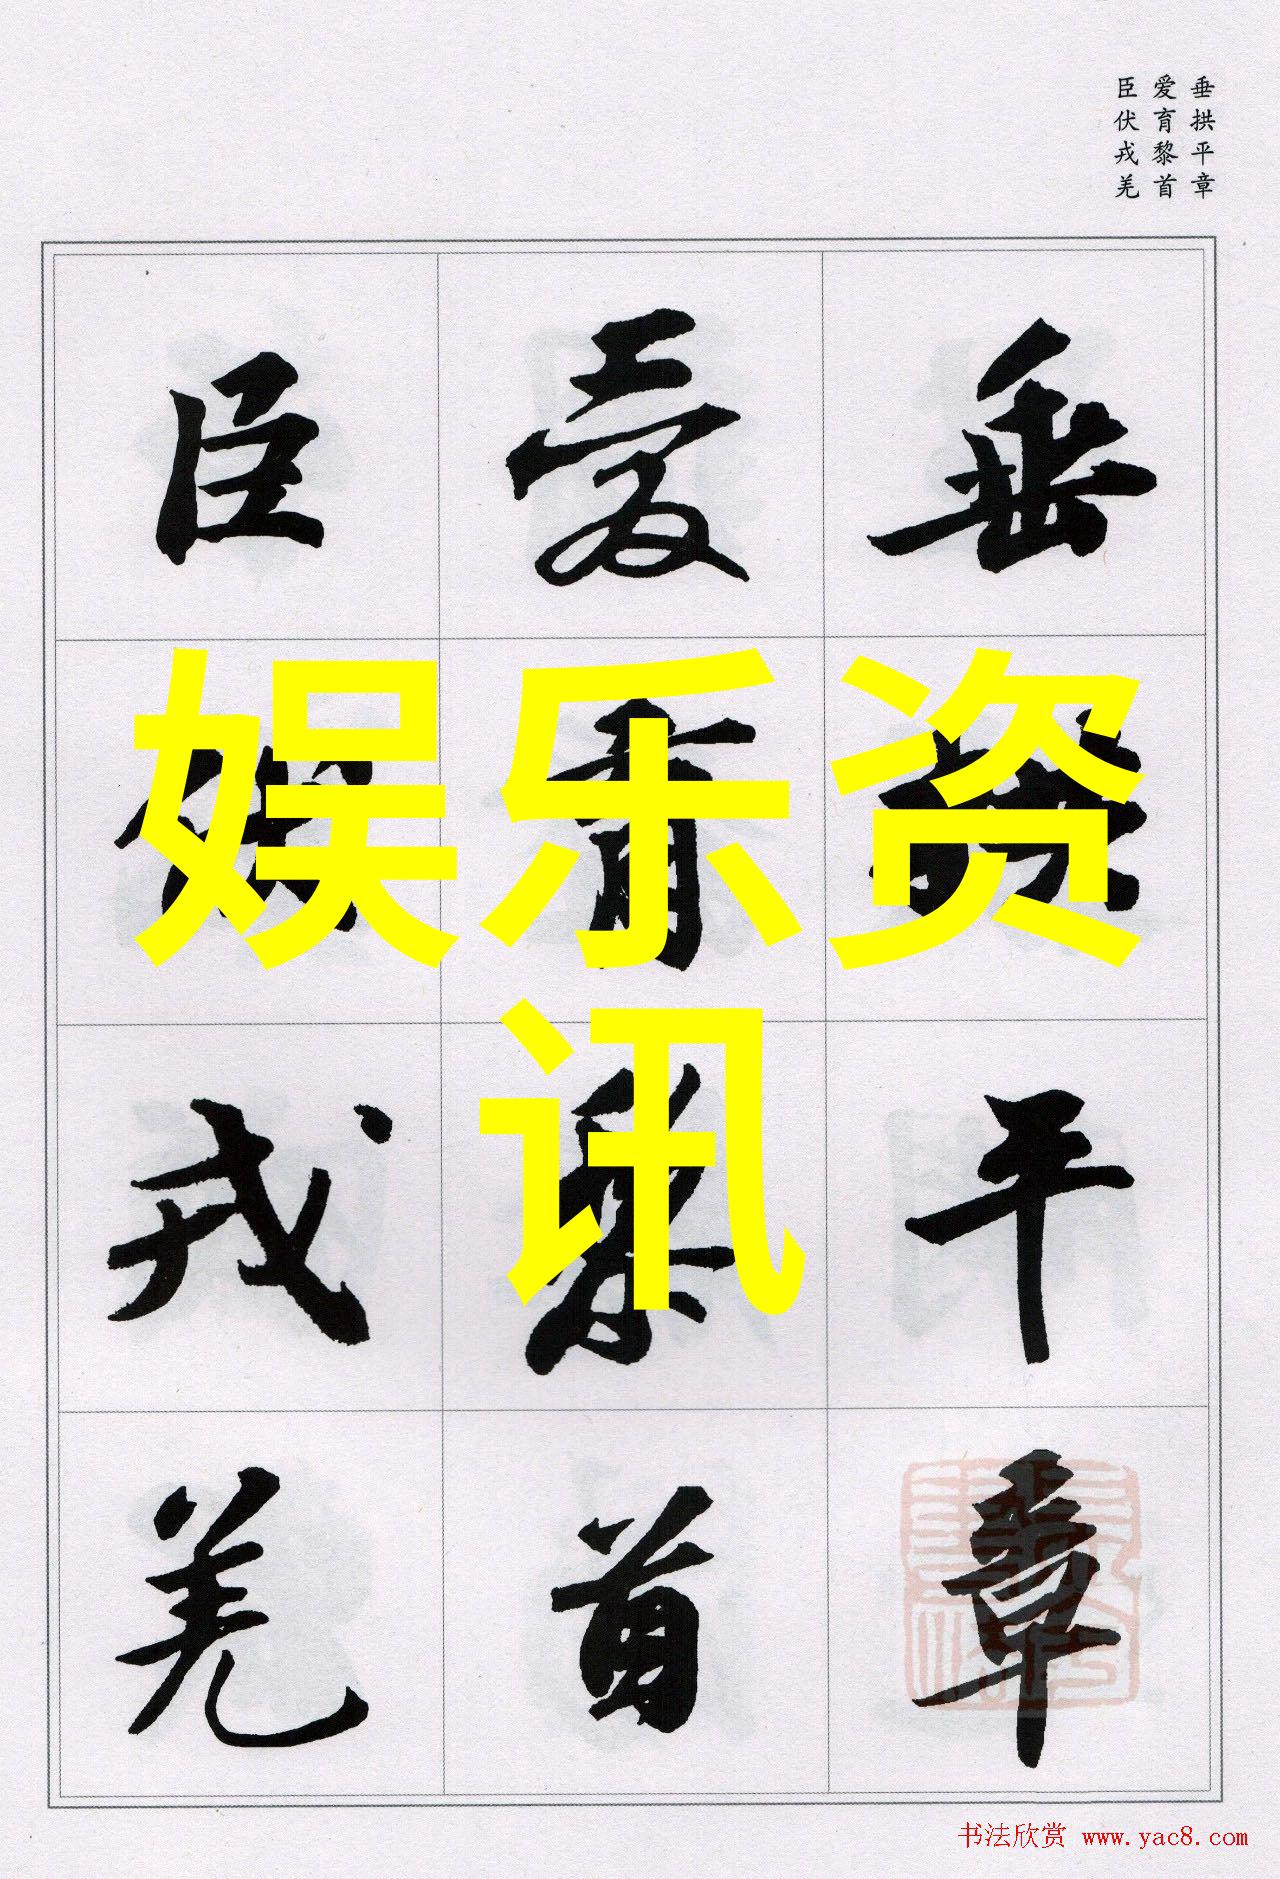 垂拱平章
爱育黎首
臣伏戎羌
垂
平章
爱育黎首
臣伏戎羌
娱乐资
讯
书法欣赏 www.yac8.com